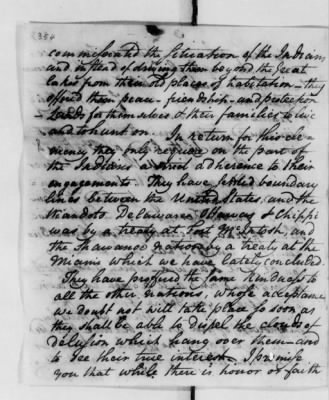 354
commiserated the situation of the Indians
and instead of driving them beyond the Great
lakes from their old places of habitation – they
offered them peace – friendship – and protection
Lands for themselves & their families to live
and to hunt on. In return for this cle-
mency they only require on the part of
the Indians a strict adherence to their
engagements. They have settled boundary
lines between the United States, and the
Wiandots Delawares Ottawas & Chippi
was by a treaty at Fort McIntosh, and
the Shawanoe nation by a treaty at the
Miami which we have lately concluded.
They have proffered the same kindness to
all the other nations, whose acceptance
we doubt not will take place so soon as
they shall be able to dispel the clouds of
delusion which hang over them – and
to see their true interest. I promise
you that while there is honor or faith